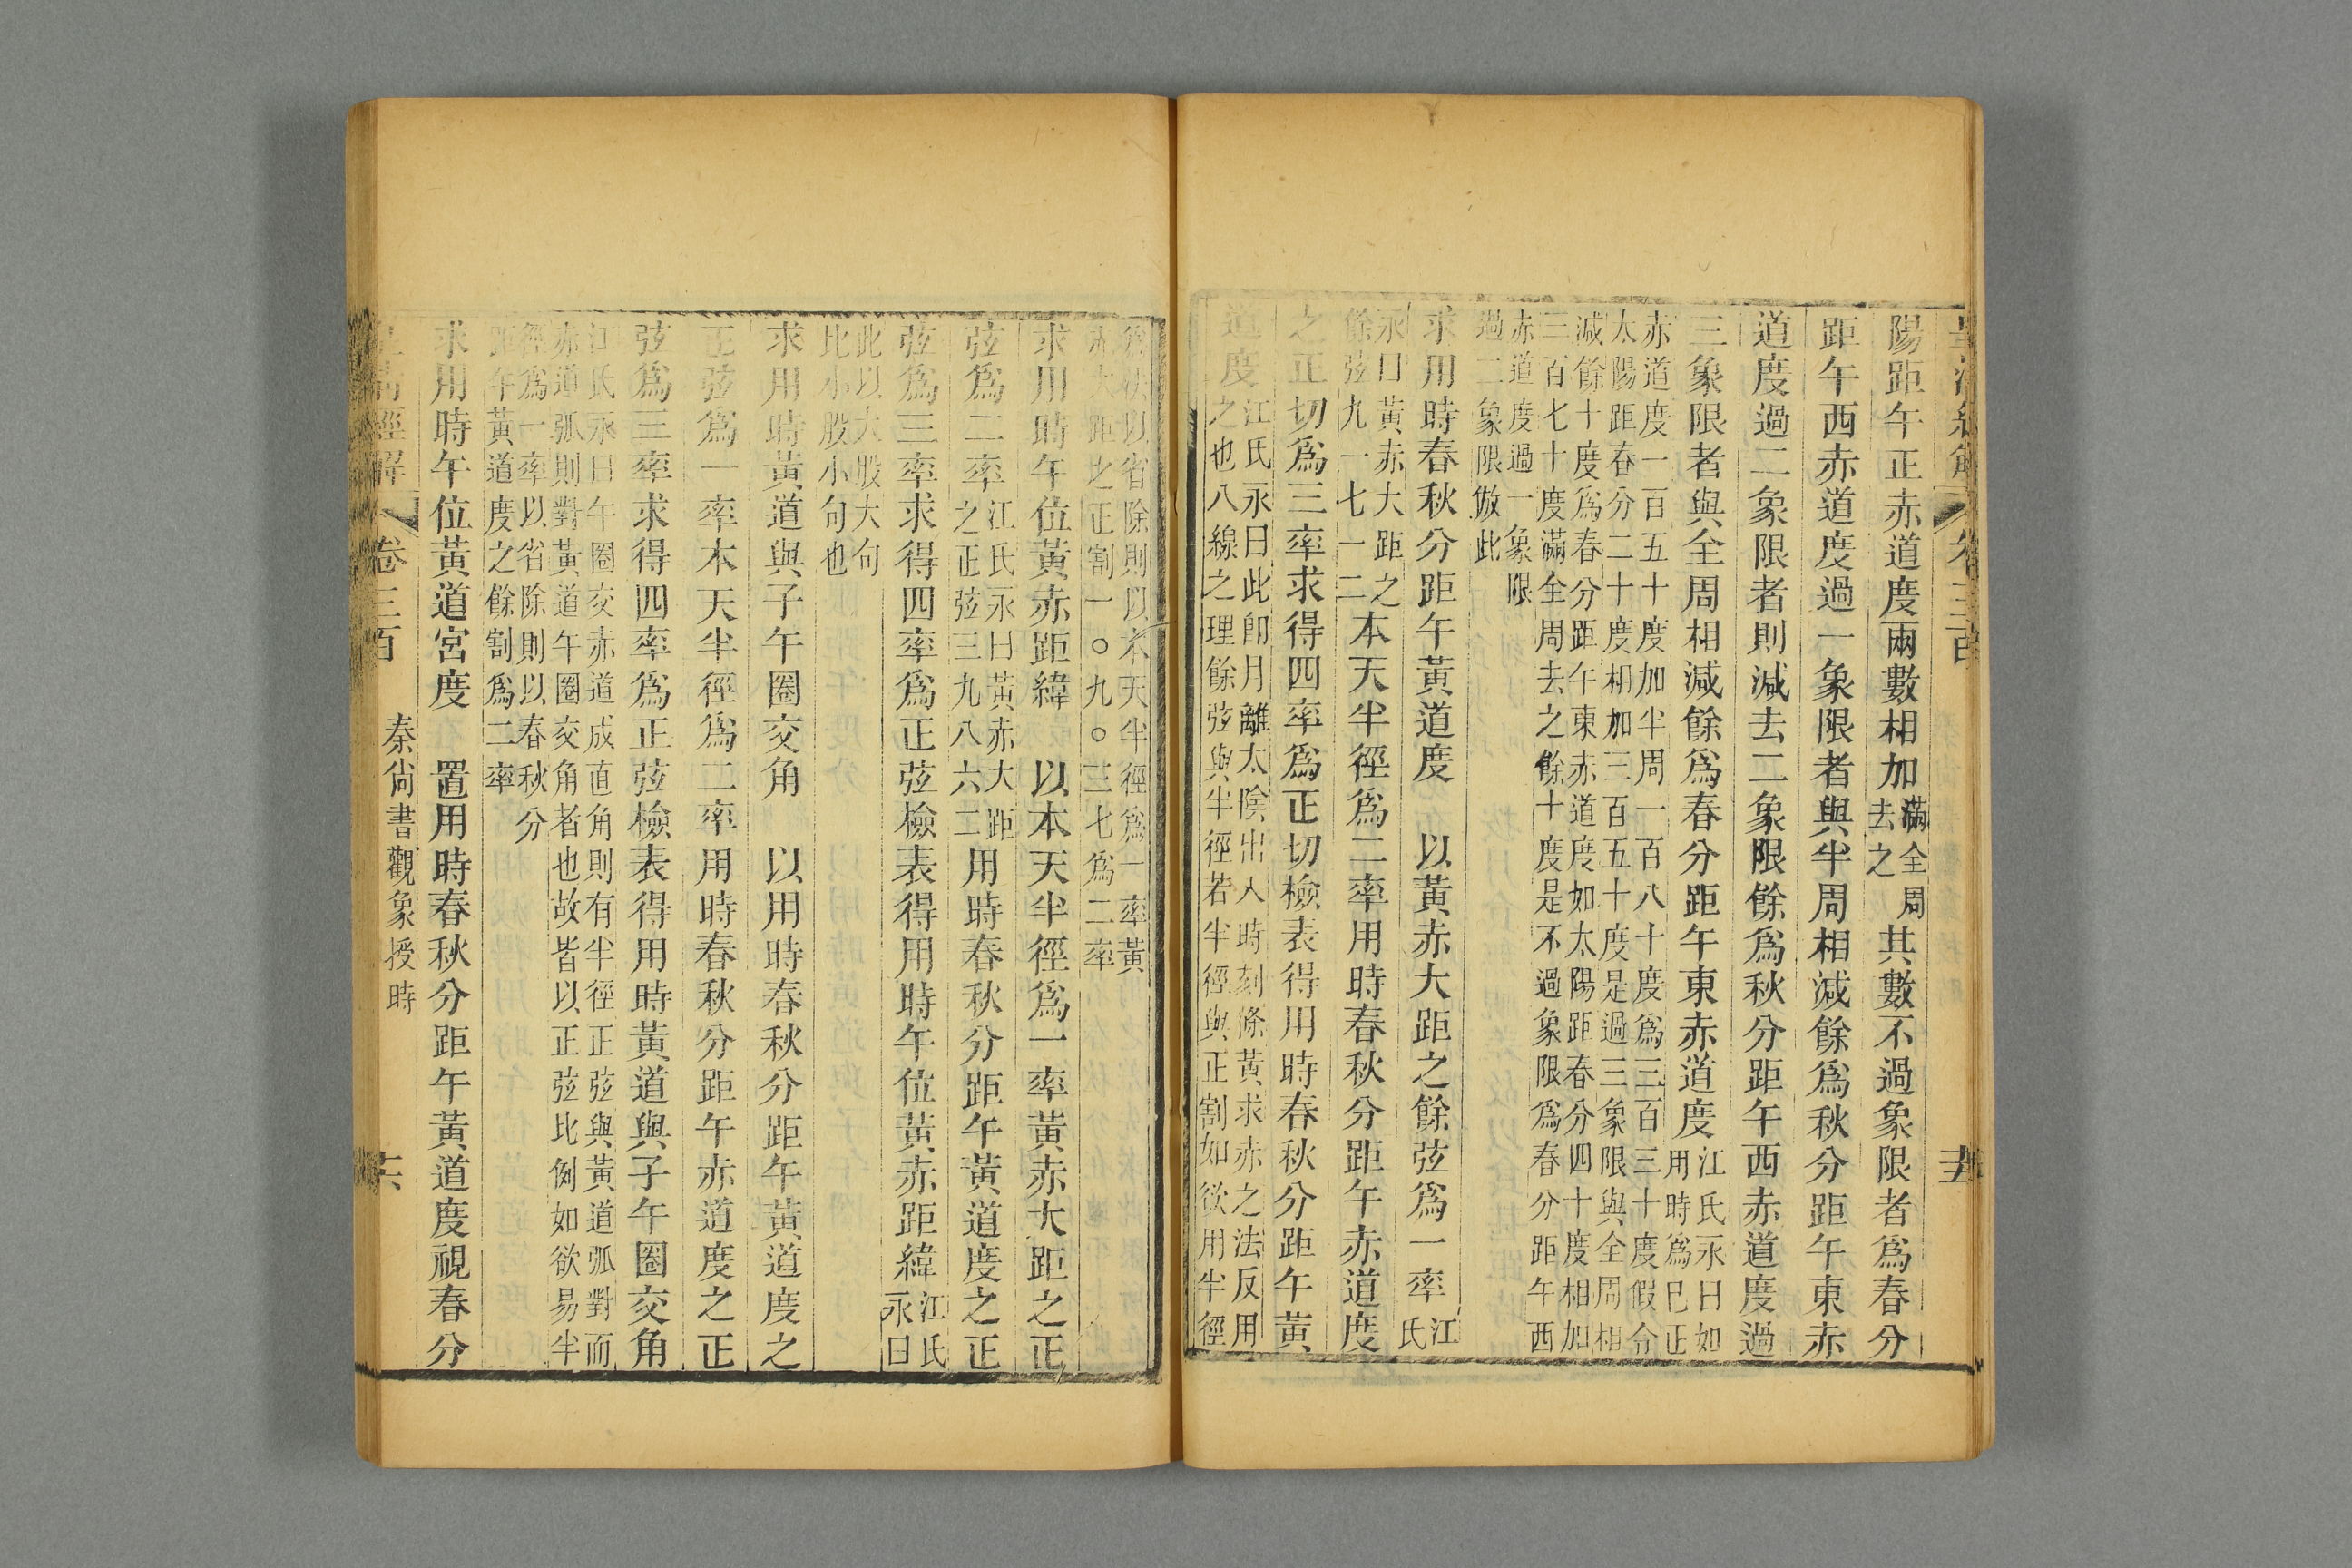 陽距午正赤道度兩數相加滿全周去之其數不過象限者爲春分
距午西赤道度過一象限者與半周相減餘爲秋分距午東赤
道度過二象限者則減去二象限餘爲秋分距午西赤道度過
三象限者與全周相減餘爲春分距午東赤道度江氏永曰如用時爲巳正
赤道度一百五十度加半周一百八十度爲三百三十度假令
太陽距春分二十度相加三百五十度是過三象限與全周相
減餘十度爲春分距午東赤道度如太陽距春分四十度相加
三百七十度滿全周去之餘十度是不過象限爲春分距午西
赤道度過一象限
過二象限倣此
求用時春秋分距午黃道度 以黃赤大距之餘弦爲一率江氏
永曰黃赤大距之餘弦九一七一二本天半徑爲二率用時春秋分距午赤道度
之正切爲三率求得四率爲正切檢表得用時春秋分距午黃
道度江氏永曰此卽月離太陰出入時刻條黃求赤之法反用之也八線之理餘弦與半徑若半徑與正割如欲用半徑
爲一以省除則以本天半徑爲一率黃
赤大距之正割一〇九〇三七爲二率
求用時午位黃赤距緯 以本天半徑爲一率黃赤大距之正
弦爲二率江氏永曰黃赤大距之正弦三九八六二用時春秋分距午黃道度之正
弦爲三率求得四率爲正弦檢表得用時午位黃赤距緯江氏永曰
此以大股大句
比小股小句也
求用時黃道與子午圈交角 以用時春秋分距午黃道度之
正弦爲一率本天半徑爲二率用時春秋分距午赤道度之正
弦爲三率求得四率爲正弦檢表得用時黃道與子午圈交角
江氏永曰午圈交赤道成直角則有半徑正弦與黃道弧對而
赤道弧則對黃道午圈交角者也故皆以正弦比例如欲易半
徑爲一率以省除則以春秋分
距午黃道度之餘割爲二率
求用時午位黃道宮度 置用時春秋分距午黃道度視春分
卷三百 秦尚書觀象授時